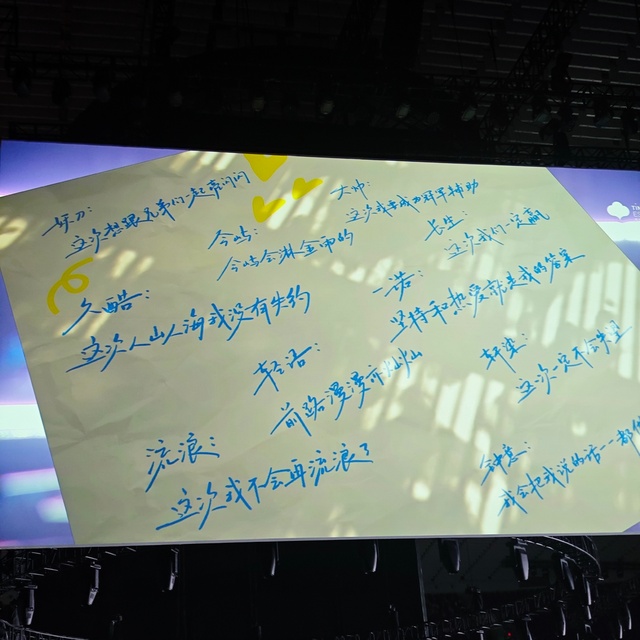 这次想跟兄弟们一起
大帅:
这次我要成为冠军辅助
今屿:
今屿会淋金雨的
长生:
这次我们一定赢
久酷:
这次人山人海我没有失约
一诺:
坚持和热爱就是我的答案
轻语:
前路漫漫亦灿灿
轩染:
这次一定不会失望
流浪:
这次我不会再流浪了
钟意:
我会把我说的话一一都